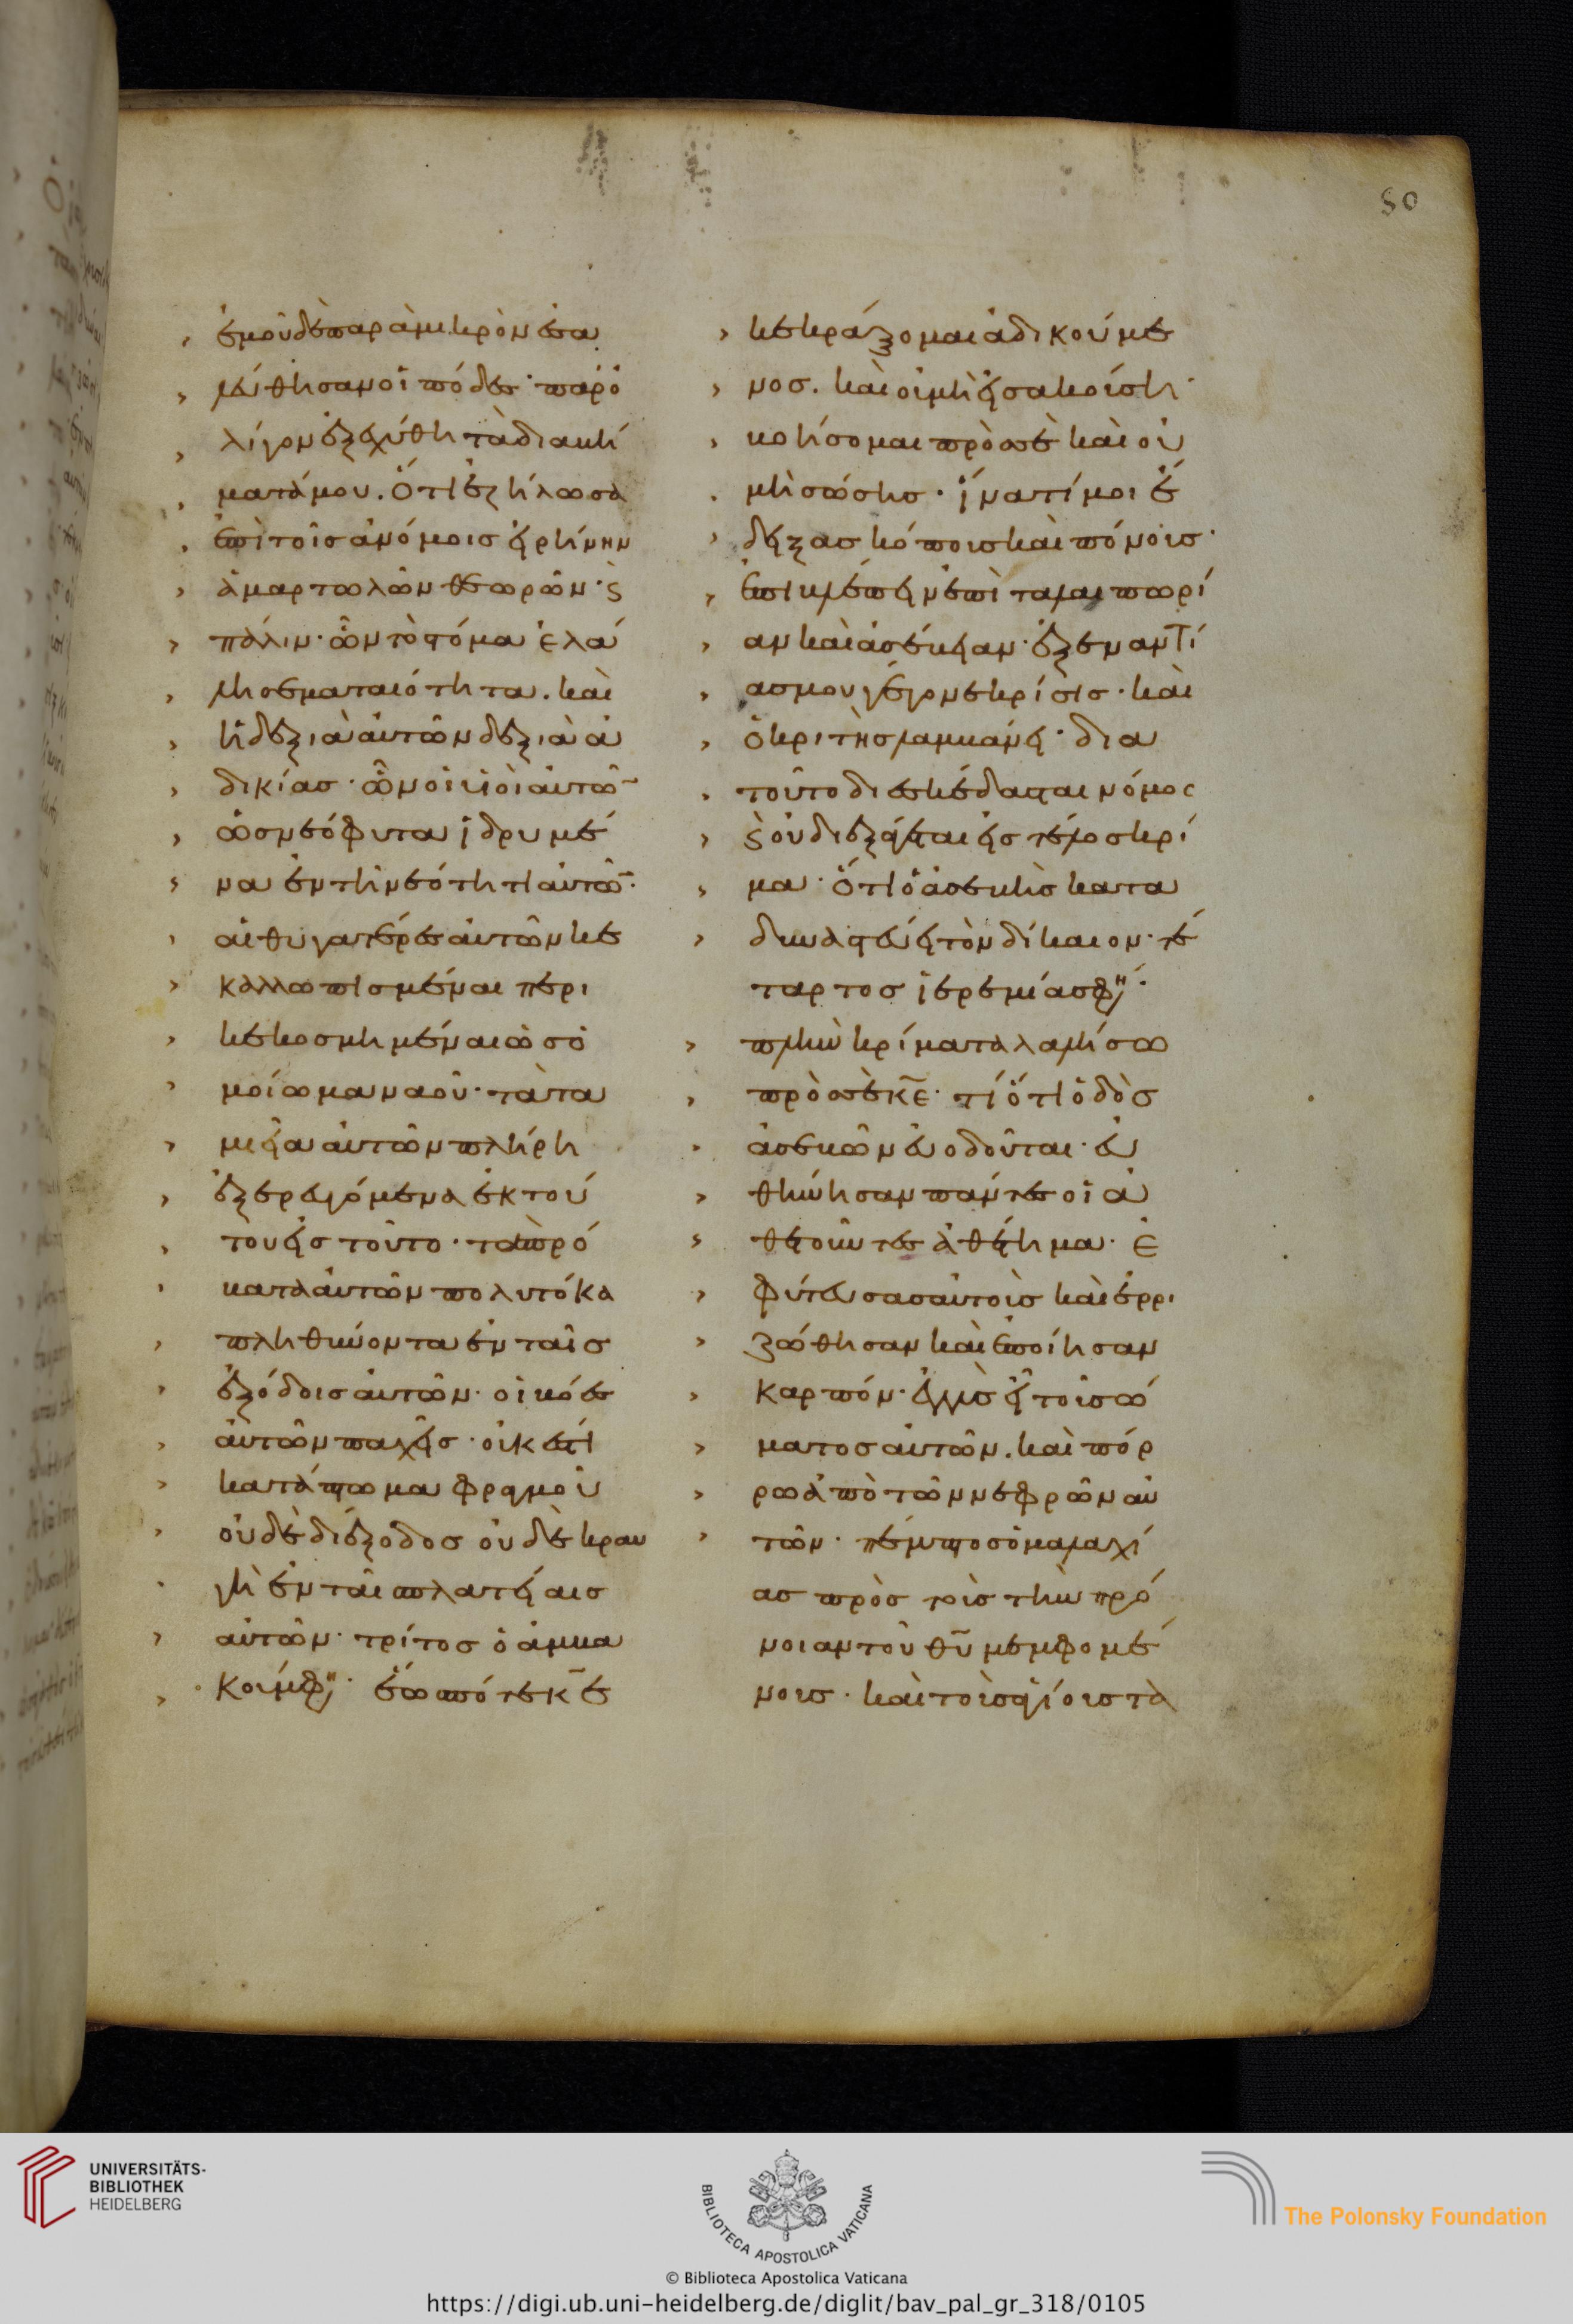 50
ἐμοῦ δὲ παρὰ μικρὸν ἐσα
λεύθησαν οἱ πόδες· παρ' ὀ
λίγον ἐξεχύθη τὰ διαβή
ματά μου. ὅτι ἐζήλωσα
ἐπὶ τοῖς ἀνόμοις εἰρήνην
ἁμαρτωλῶν θεωρῶν· ϛ
πάλιν· ὧν τὸ στόμα ἐλά
λησε ματαιότητα. καὶ
ἡ δεξιὰ αὐτῶν δεξιὰ ἀ
δικίας· ὧν οἱ υἱοὶ αὐτῶ̅
ὡς νεόφυτα ἱδρυμέ
να ἐν τῆ νεότητι αὐτῶ̅·
αἱ θυγατέρες αὐτῶν κε
καλλωπισμέναι περι
κεκοσμημέναι ὡς ὁ
μοίωμα ναοῦ· τὰ τα
μεῖα αὐτῶν πλήρη
ἐξερευγόμενα ἐκ τού
του εἰς τοῦτο· τὰ πρό
βατα αὐτῶν πολυτόκα
πληθύνοντα ἐν ταῖς
ἐξόδοις αὐτῶν· οἱ βόες
αὐτῶν παχεῖς· οὐκ ἔστι
κατάπτωμα φραγμοῦ
οὐδὲ διέξοδος οὐδὲ κραυ
γὴ ἐν ταῖς πλατείαις
αὐτῶν· τρίτος ὁ ἀμβα
κούμ φη· ἕως πότε κ̅ε̅
κεκράξομαι ἀδικούμε
νος. καὶ οὐ μὴ εἰσακούση·
βοήσομαι πρὸς σὲ καὶ οὐ
μὴ σώσης· ἵνα τί μοι ἔ
δειξας κόπους καὶ πόνους·
ἐπιβλέπειν ἐπὶ ταλαιπωρί
αν καὶ ἀσέβειαν· ἐξεναντί
ας μου γέγονε κρίσις· καὶ
ὁ κριτὴς λαμβάνει· δια
τοῦτο διεσκέδασται νόμος
ϛ οὐ διεξάγεται εἰς τέλος κρί
μα· ὅτι ὁ ἀσεβὴς κατα
δυναστεύει τὸν δίκαιον· τέ
ταρτος ἱερεμίας φη·
πλὴν κρίματα λαλήσω
πρὸς σὲ κ̅ε̅· τί ὅτι ὁδὸς
ἀσεβῶν εὐοδοῦται· εὐ
θήνησαν πάντες οἱ ἀ
θετοῦντες ἀθέτημα· ἐ
φύτευσας αὐτοὺς καὶ ἐρρι
ζώθησαν καὶ ἐποίησαν
καρπόν· ἐγγὺς εἶ τοῦ στό
ματος αὐτῶν. καὶ πόρ
ρω ἀπὸ τῶν νεφρῶν αὐ
τῶν· πέμπτος ὁ μαλαχί
ας πρὸς τοὺς τὴν πρό
νοιαν τοῦ θ̅υ̅ μεμφομέ
νους· καὶ τοὺς ἁγίους τα
UNIVERSITÄTS-
BIBLIOTHEK
HEIDELBERG
BIBLIOTECA APOSTOLICA VATICANA
© Biblioteca Apostolica Vaticana
The Polonsky Foundation
https://digi.ub.uni-heidelberg.de/diglit/bav_pal_gr_318/0105